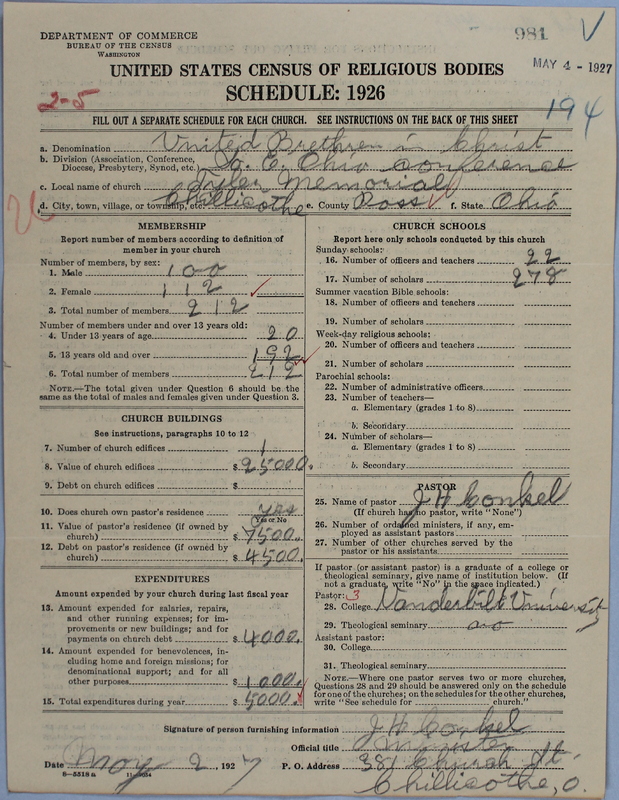 DEPARTMENT OF COMMERCE
BUREAU OF THE CENSUS
WASHINGTON
981
MAY 4 - 1927
UNITED STATES CENSUS OF RELIGIOUS BODIES
SCHEDULE: 1926
2-5
194
FILL OUT A SEPARATE SCHEDULE FOR EACH CHURCH. SEE INSTRUCTIONS ON THE BACK OF THIS SHEET
a. Denomination United Brethren in Christ
b. Division (Association, Conference, Diocese, Presbytery, Synod, etc.) So. E. Ohio Conference
c. Local name of church Tyler Memorial
d. City, town, village, or township, etc. Chillicothe e. County Ross f. State Ohio
MEMBERSHIP
Report number of members according to definition of
member in your church
Number of members, by sex:
1. Male 100
2. Female 112
3. Total number of members 212
Number of members under and over 13 years old:
4. Under 13 years of age 20
5. 13 years old and over 192
6. Total number of members 212
NOTE.—The total given under Question 6 should be the
same as the total of males and females given under Question 3.
CHURCH BUILDINGS
See instructions, paragraphs 10 to 12
7. Number of church edifices 1
8. Value of church edifices $ 25000.
9. Debt on church edifices $
10. Does church own pastor's residence yes
(Yes or No)
11. Value of pastor's residence (if owned by
church) $ 7500.
12. Debt on pastor's residence (if owned by
church) $ 4500.
EXPENDITURES
Amount expended by your church during last fiscal year
13. Amount expended for salaries, repairs,
and other running expenses; for im-
provements or new buildings; and for
payments on church debt $ 4000.
14. Amount expended for benevolences, in-
cluding home and foreign missions; for
denominational support; and for all
other purposes $ 1000.
15. Total expenditures during year $ 5000.
CHURCH SCHOOLS
Report here only schools conducted by this church
Sunday schools:
16. Number of officers and teachers 22
17. Number of scholars 278
Summer vacation Bible schools:
18. Number of officers and teachers
19. Number of scholars
Week-day religious schools:
20. Number of officers and teachers
21. Number of scholars
Parochial schools:
22. Number of administrative officers
23. Number of teachers—
a. Elementary (grades 1 to 8)
b. Secondary
24. Number of scholars—
a. Elementary (grades 1 to 8)
b. Secondary
PASTOR
25. Name of pastor J H Conkel
(If church has no pastor, write "None")
26. Number of ordained ministers, if any, em-
ployed as assistant pastors
27. Number of other churches served by the
pastor or his assistants
If pastor (or assistant pastor) is a graduate of a college or
theological seminary, give name of institution below. (If
not a graduate, write "No" in the space indicated.)
Pastor: 3
28. College Vanderbilt University
29. Theological seminary no
Assistant pastor:
30. College
31. Theological seminary
NOTE.—Where one pastor serves two or more churches,
Questions 28 and 29 should be answered only on the schedule
for one of the churches; on the schedules for the other churches,
write "See schedule for church."
Signature of person furnishing information J H Conkel
Official title Minister
Date May 2, 1927 P. O. Address 381 Church St.
8-5518a Chillicothe, O.